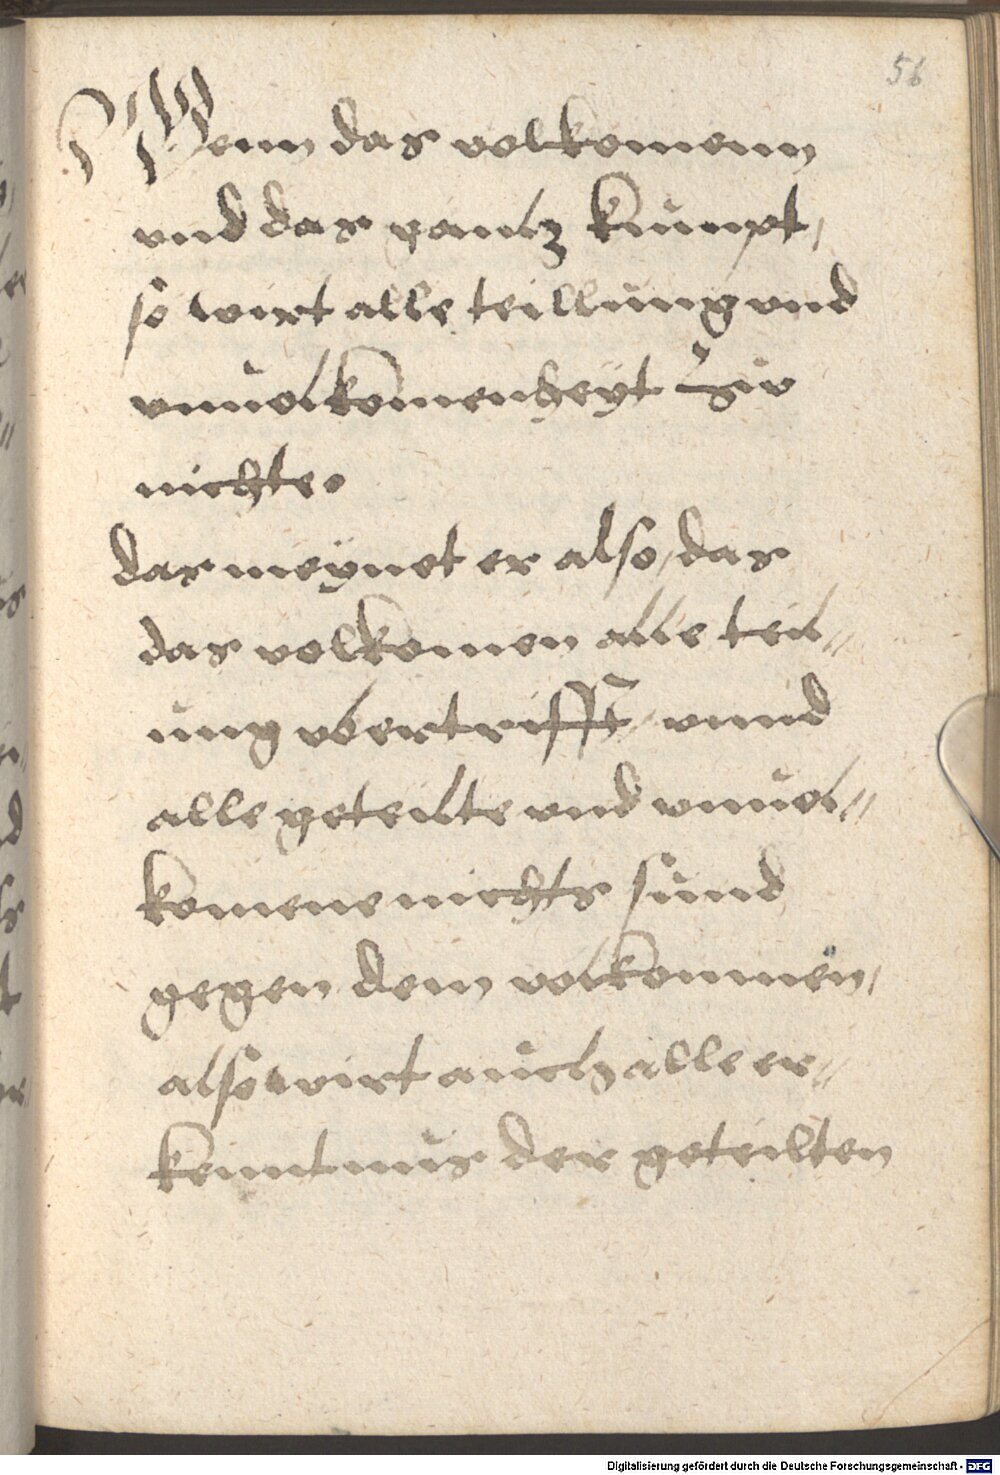 56
Wenn das volkomenn
vnd das gantz kumpt,
so wirt alle teillung vnd
vnuolkomenheyt zu
nichte.
das meynet er also, das
das volkomen alle teil//
ung vbertrifft, vnnd
alle geteilte vnd vnuol//
komene nichts sund
gegen dem volkommen,
also wirt auch alle er//
kenntnus der geteilten
Digitalisierung gefördert durch die Deutsche Forschungsgemeinschaft - DFG